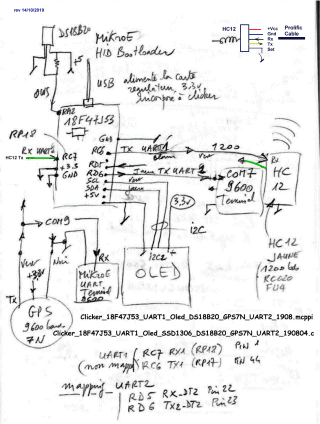 rev 14/10/2019
HC12
+Vcc
Gnd
Rx
Tx
Set
Prolific
Cable
DS18B20
MikroE
HID Bootloader
+5
USB
alimente la carte
regulateur 3.3V
incorporé à clicker
OUS
RA2
18F47J53
RP18
RX UART1
HC12 Tx
RC7
+3.3
GND
Gnd
RC6
TX UART1
1200
RD5
RD6
TX UART2
SCL
SDA
+5V
COM7
9600
Terminal
Rx
HC
12
3,3V
I2C
COM9
Vert
+3,3V
Noir
Rx
MikroE
UART
Terminal
9600
I2C2
OLED
HC12
JAUNE
1200 bds
RC020
FU4
Tx
GPS
9600 baud
7N
Clicker_18F47J53_UART1_Oled_DS18B20_GPS7N_UART2_1908.mcppi
Clicker_18F47J53_UART1_Oled_SSD1306_DS18B20_GPS7N_UART2_190804.c
UART1
(non mapp)
RC7 RX1 (RP18) PIN 1
RC6 TX1 (RP17) PIN 44
mapping UART2
RD5 RX-DT2 Pin 22
RD6 TX2-DT2 Pin 23